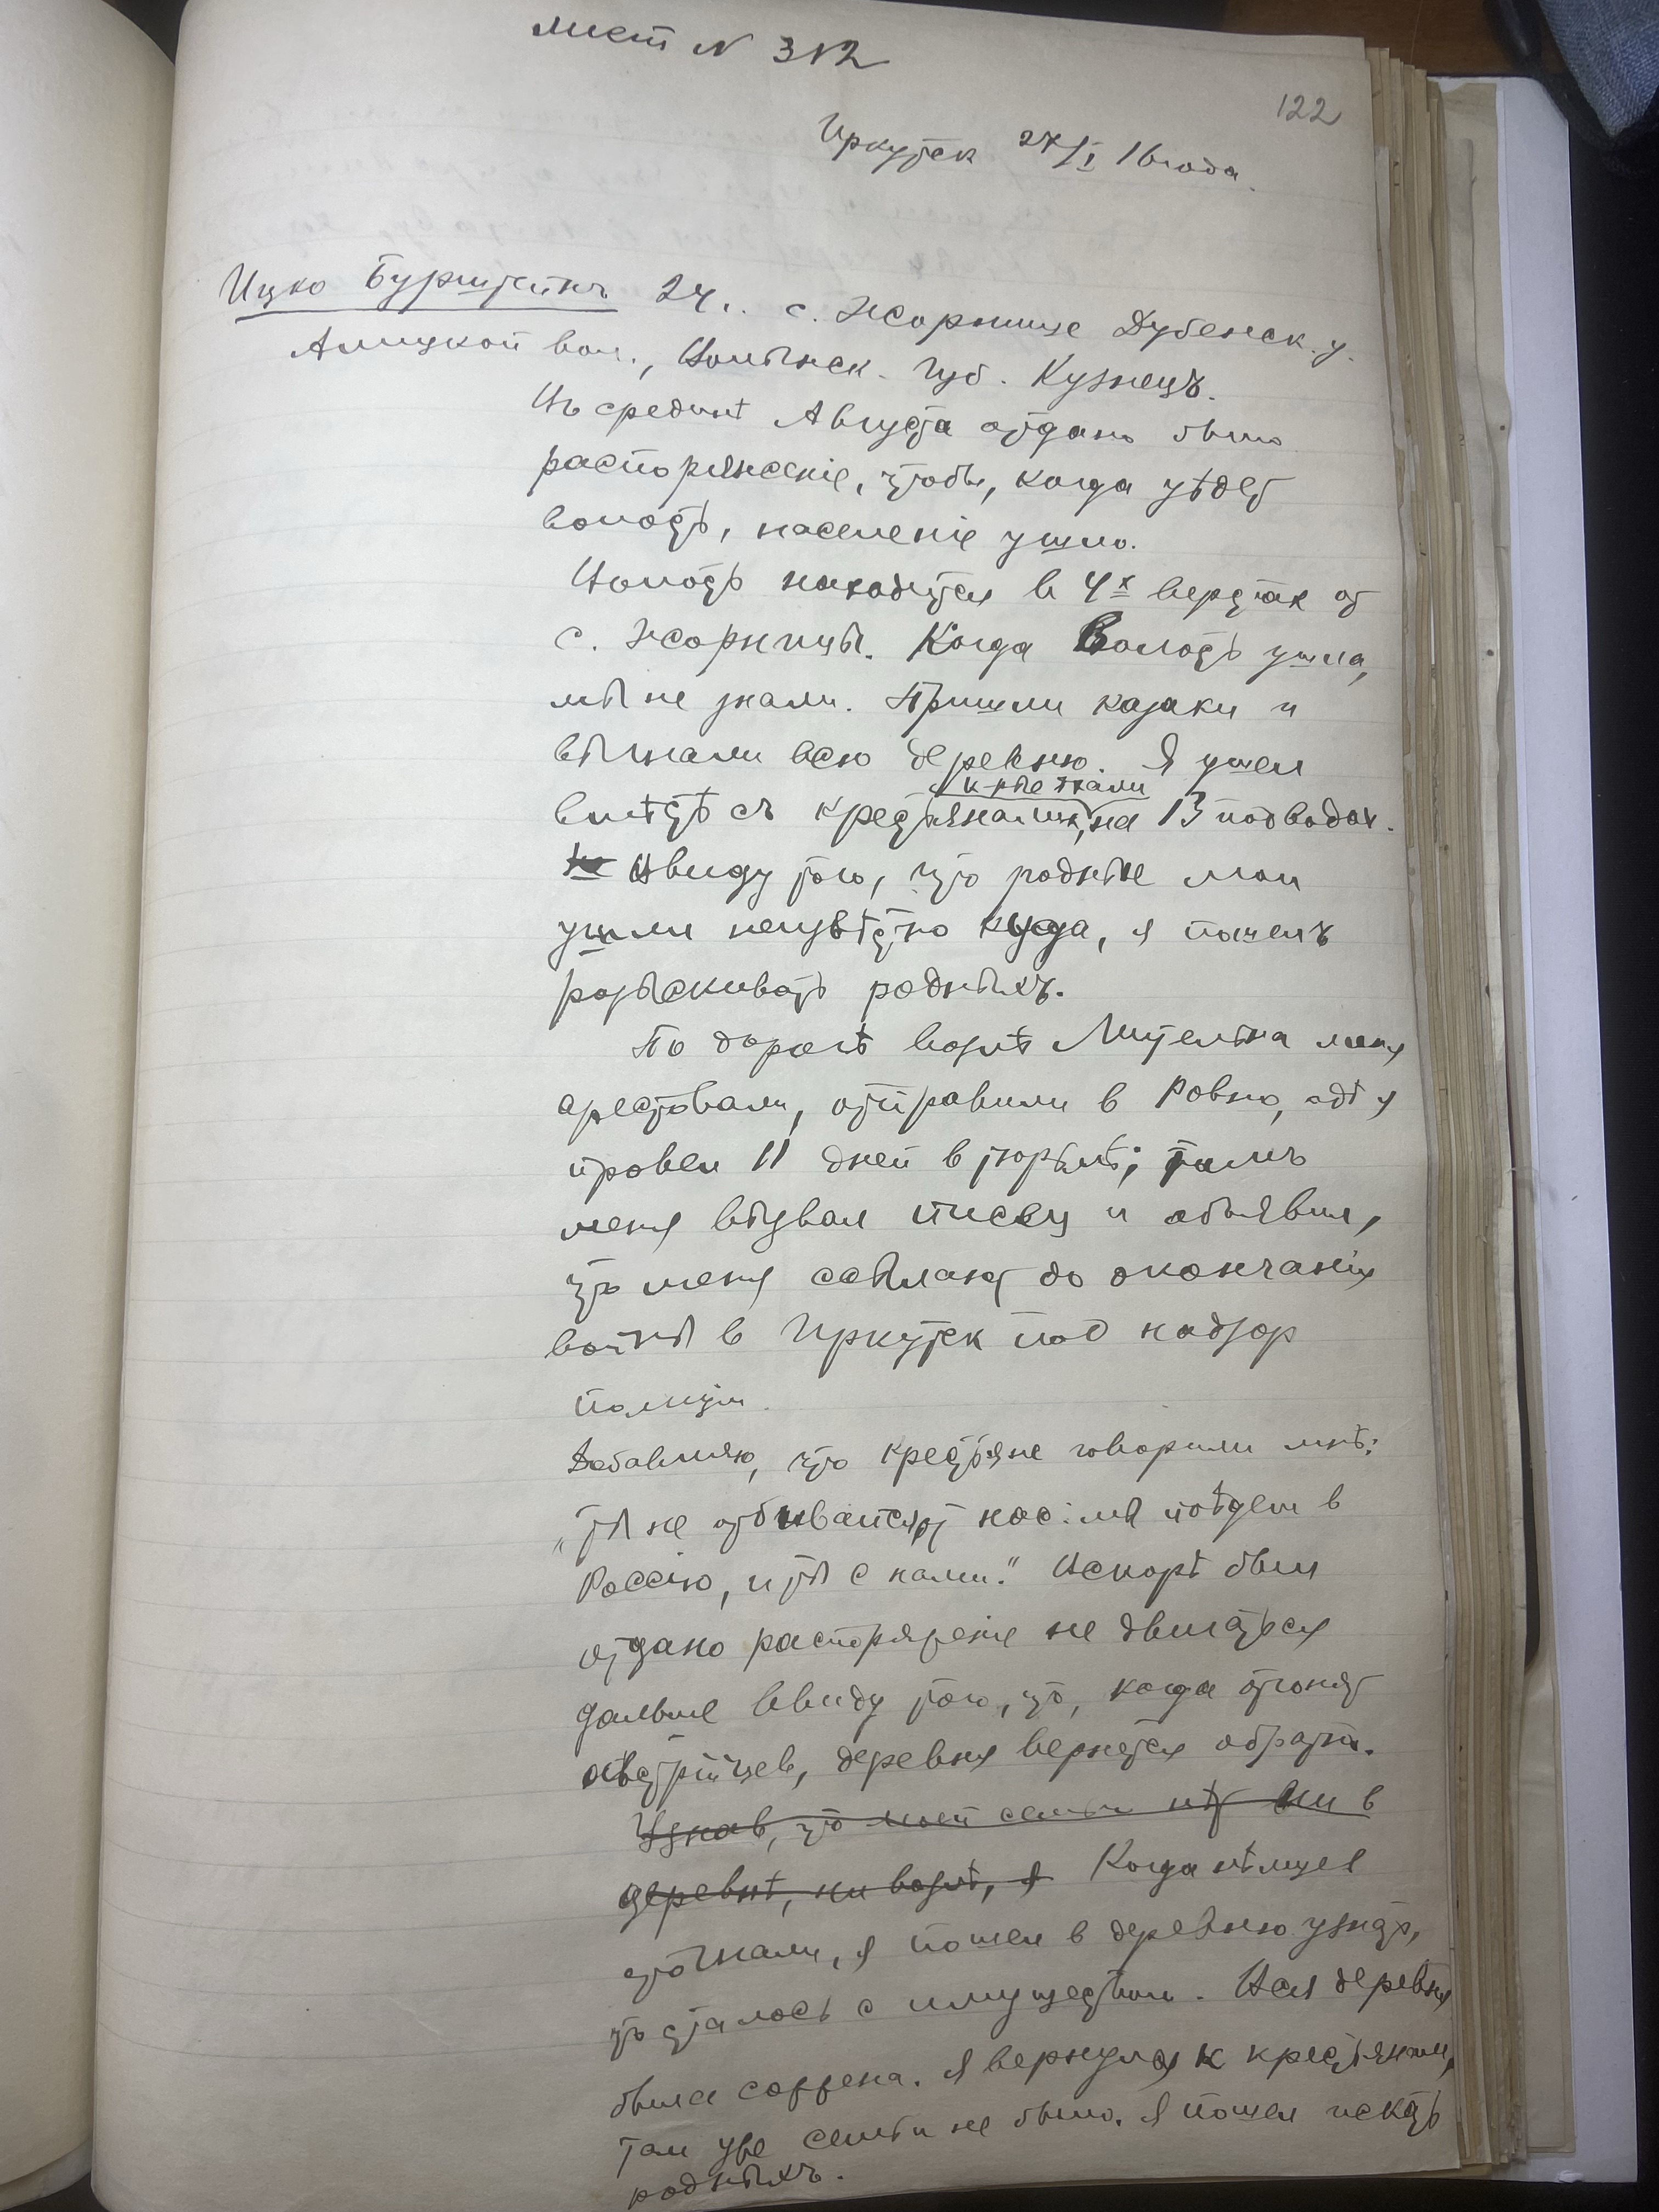 лист N 312
122
Иркутск 27/I 16 года.
Ицко Бурштейнъ 24 л. с. Жорнище Дубенск. у.
вол., Волынск. губ. Кузнецъ.
Въ срединѣ Августа отдано было
распоряженіе, чтобы, когда уѣдет
волость, населеніе ушло.
Волость находится в 4х верстах от
с. Жорнищы. Когда Волость ушла,
мы не знали. Пришли казаки и
выгнали всю деревню. Я ушел
вмѣстѣ съ крестьянами, на 13 подводах.
Ввиду того, что родные мои
ушли неизвѣстно куда, я пошелъ
разыскивать родныхъ.
По дорогѣ возлѣ меня
арестовали, отправили в Ровно, гдѣ я
провел 11 дней в тюрьмѣ; тамъ
меня вызвал писец и объявил,
что меня ссылают до окончанія
войны в Иркутск под надзор
полиціи.
Добавляю, что крестьяне говорили мнѣ:
„ты не отбивайся от нас: мы поѣдем в
Россію, и ты с нами." Вскорѣ было
отдано распоряженіе не двигаться
дальше ввиду того, что, когда отгонят
австрійцев, деревня вернется обратно.
Узнав, что моей семьи нѣт ни в
деревнѣ, ни возлѣ, я Когда нѣмцев
отогнали, я пошел в деревню узнать,
что сталось с имуществом. Вся деревня
была сожжена. Я вернулся к крестьянам,
там уже семьи не было. Я пошел искать
родныхъ.